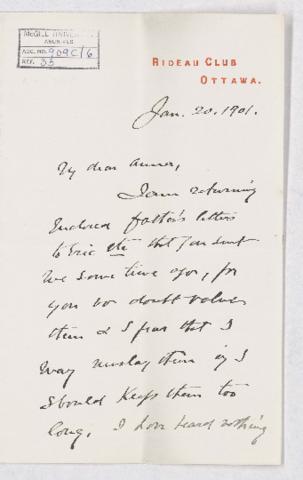 McGILL UNIVERSITY
ARCHIVES
ACC. NO. 909C/6
REF. 35
RIDEAU CLUB
OTTAWA.
Jan. 20. 1901.
My dear
I am returning
Enclosed letters
to Eric that you sent
me some time ago, for
you no doubt value
them & I fear that I
may mislay them if I
should keep them too
long. I have heard nothing